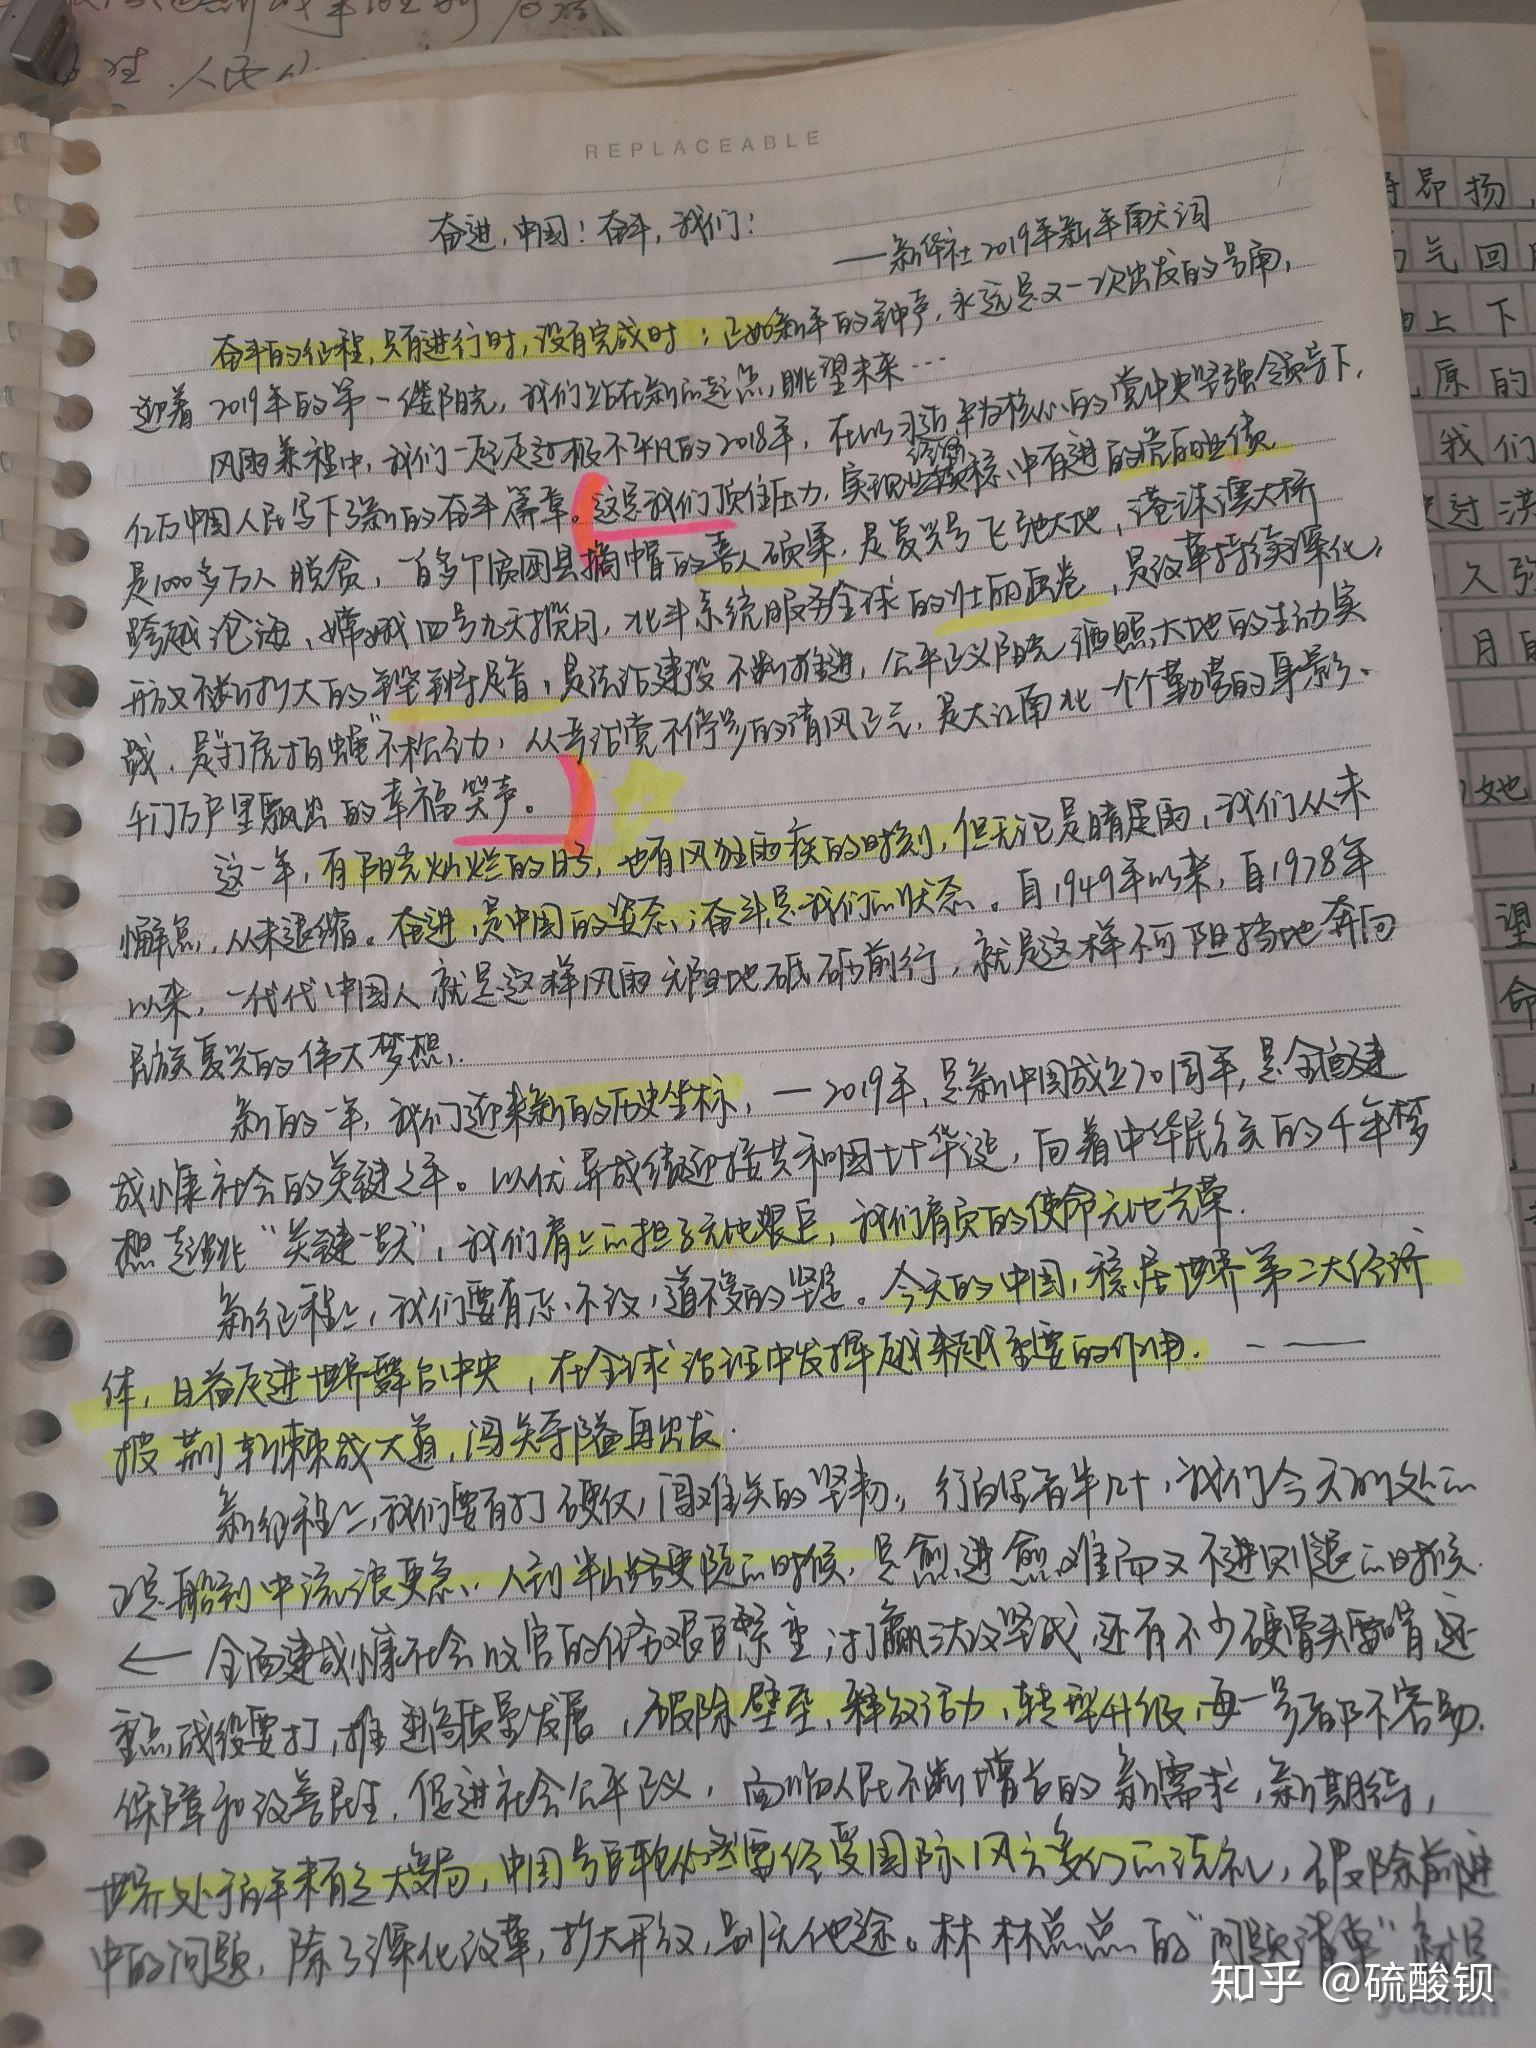 REPLACEABLE
奋进,中国!奋斗,我们!
——新华社2019年新年献词
奋斗的征程,只有进行时,没有完成时;正如新年的钟声,永远是又一次出发的号角,
迎着2019年的第一缕阳光,我们站在新的起点,眺望未来…
风雨兼程中,我们一起走过极不平凡的2018年,在以习近平为核心的党中央坚强领导下,
亿万中国人民写下了新的奋斗篇章。这是我们顶住压力,实现经济稳中有进的亮丽业绩,
是1000多万人脱贫,百多个贫困县摘帽的喜人硕果,是复兴号飞驰大地,港珠澳大桥
跨越沧海,嫦娥四号九天揽月,北斗系统服务全球的壮丽画卷,是改革持续深化,
开放不断扩大的铿锵足音,是法治建设不断推进,公平正义阳光洒照大地的生动实
战,是“打虎拍蝇”不松劲,从严治党不停步的清风正气,是大江南北一个个勤劳的身影、
千门万户里飘出的幸福笑声。
这一年,有阳光灿烂的日子,也有风狂雨疾的时刻,但无论是晴是雨,我们从未
懈怠,从未退缩。奋进,是中国的姿态;奋斗,是我们的状态。自1949年以来,自1978年
以来,一代代中国人就是这样风雨无阻地砥砺前行,就是这样不可阻挡地奔向
民族复兴的伟大梦想,
新的一年,我们迎来新的历史坐标,—2019年,是新中国成立70周年,是全面建
成小康社会的关键之年。以优异成绩迎接共和国七十华诞,向着中华民族的千年梦
想起跳“关键一跃”,我们肩上的担子无比艰巨,我们肩负的使命无比光荣.
新征程上,我们要有志不改,道不变的坚定。今天的中国,稳居世界第二大经济
体,日益走进世界舞台中央,在全球治理中发挥越来越重要的作用.
披荆斩棘成大道,闯关夺隘再出发.
新征程上,我们要有打硬仗,闯难关的坚韧,行百里者半九十,我们今天所处的
是船到中流浪更急、人到半山路更陡的时候,是愈进愈难而又不进则退的时候.
← 全面建成小康社会收官的任务艰巨繁重,打赢三大攻坚战,还有不少硬骨头要啃,还
重点战役要打,推进高质量发展,破除壁垒,释放活力,转型升级,每一步都不容易.
保障和改善民生,促进社会公平正义,面临人民不断增长的新需求,新期待,
世界处于百年未有之大变局,中国号巨轮必然要经受国际风云变幻的洗礼,破除前进
中的问题,除了深化改革,扩大开放,别无他途。林林总总的“问题清单”
知乎 @硫酸钡
人民
昂扬,
气回
上下
原的
我们
过洪
久弥
月
她
望
命